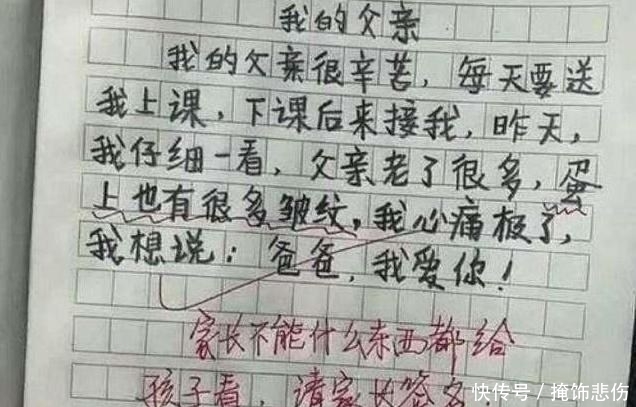 我的父亲
我的父亲很辛苦，每天要送
我上课，下课后来接我，昨天，
我仔细一看，父亲老了很多，蛋
上也有很多皱纹，我心痛极了，
我想说：爸爸，我爱你！
家长不能什么东西都给
孩子看，请家长签名
快传号／掩饰悲伤